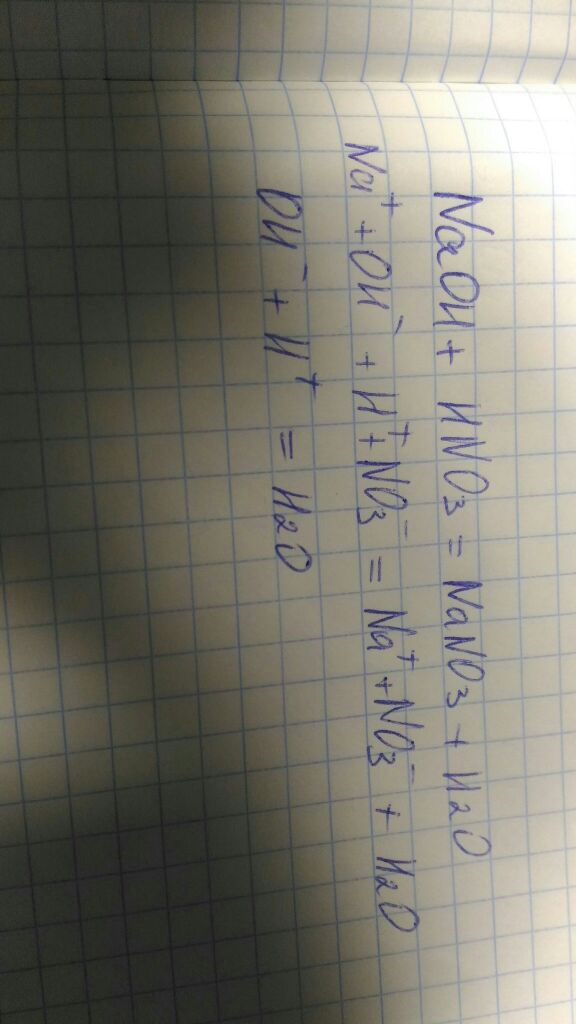 NaOH + HNO3 = NaNO3 + H2O
Na⁺ + OH⁻ + H⁺ + NO3⁻ = Na⁺ + NO3⁻ + H2O
OH⁻ + H⁺ = H2O